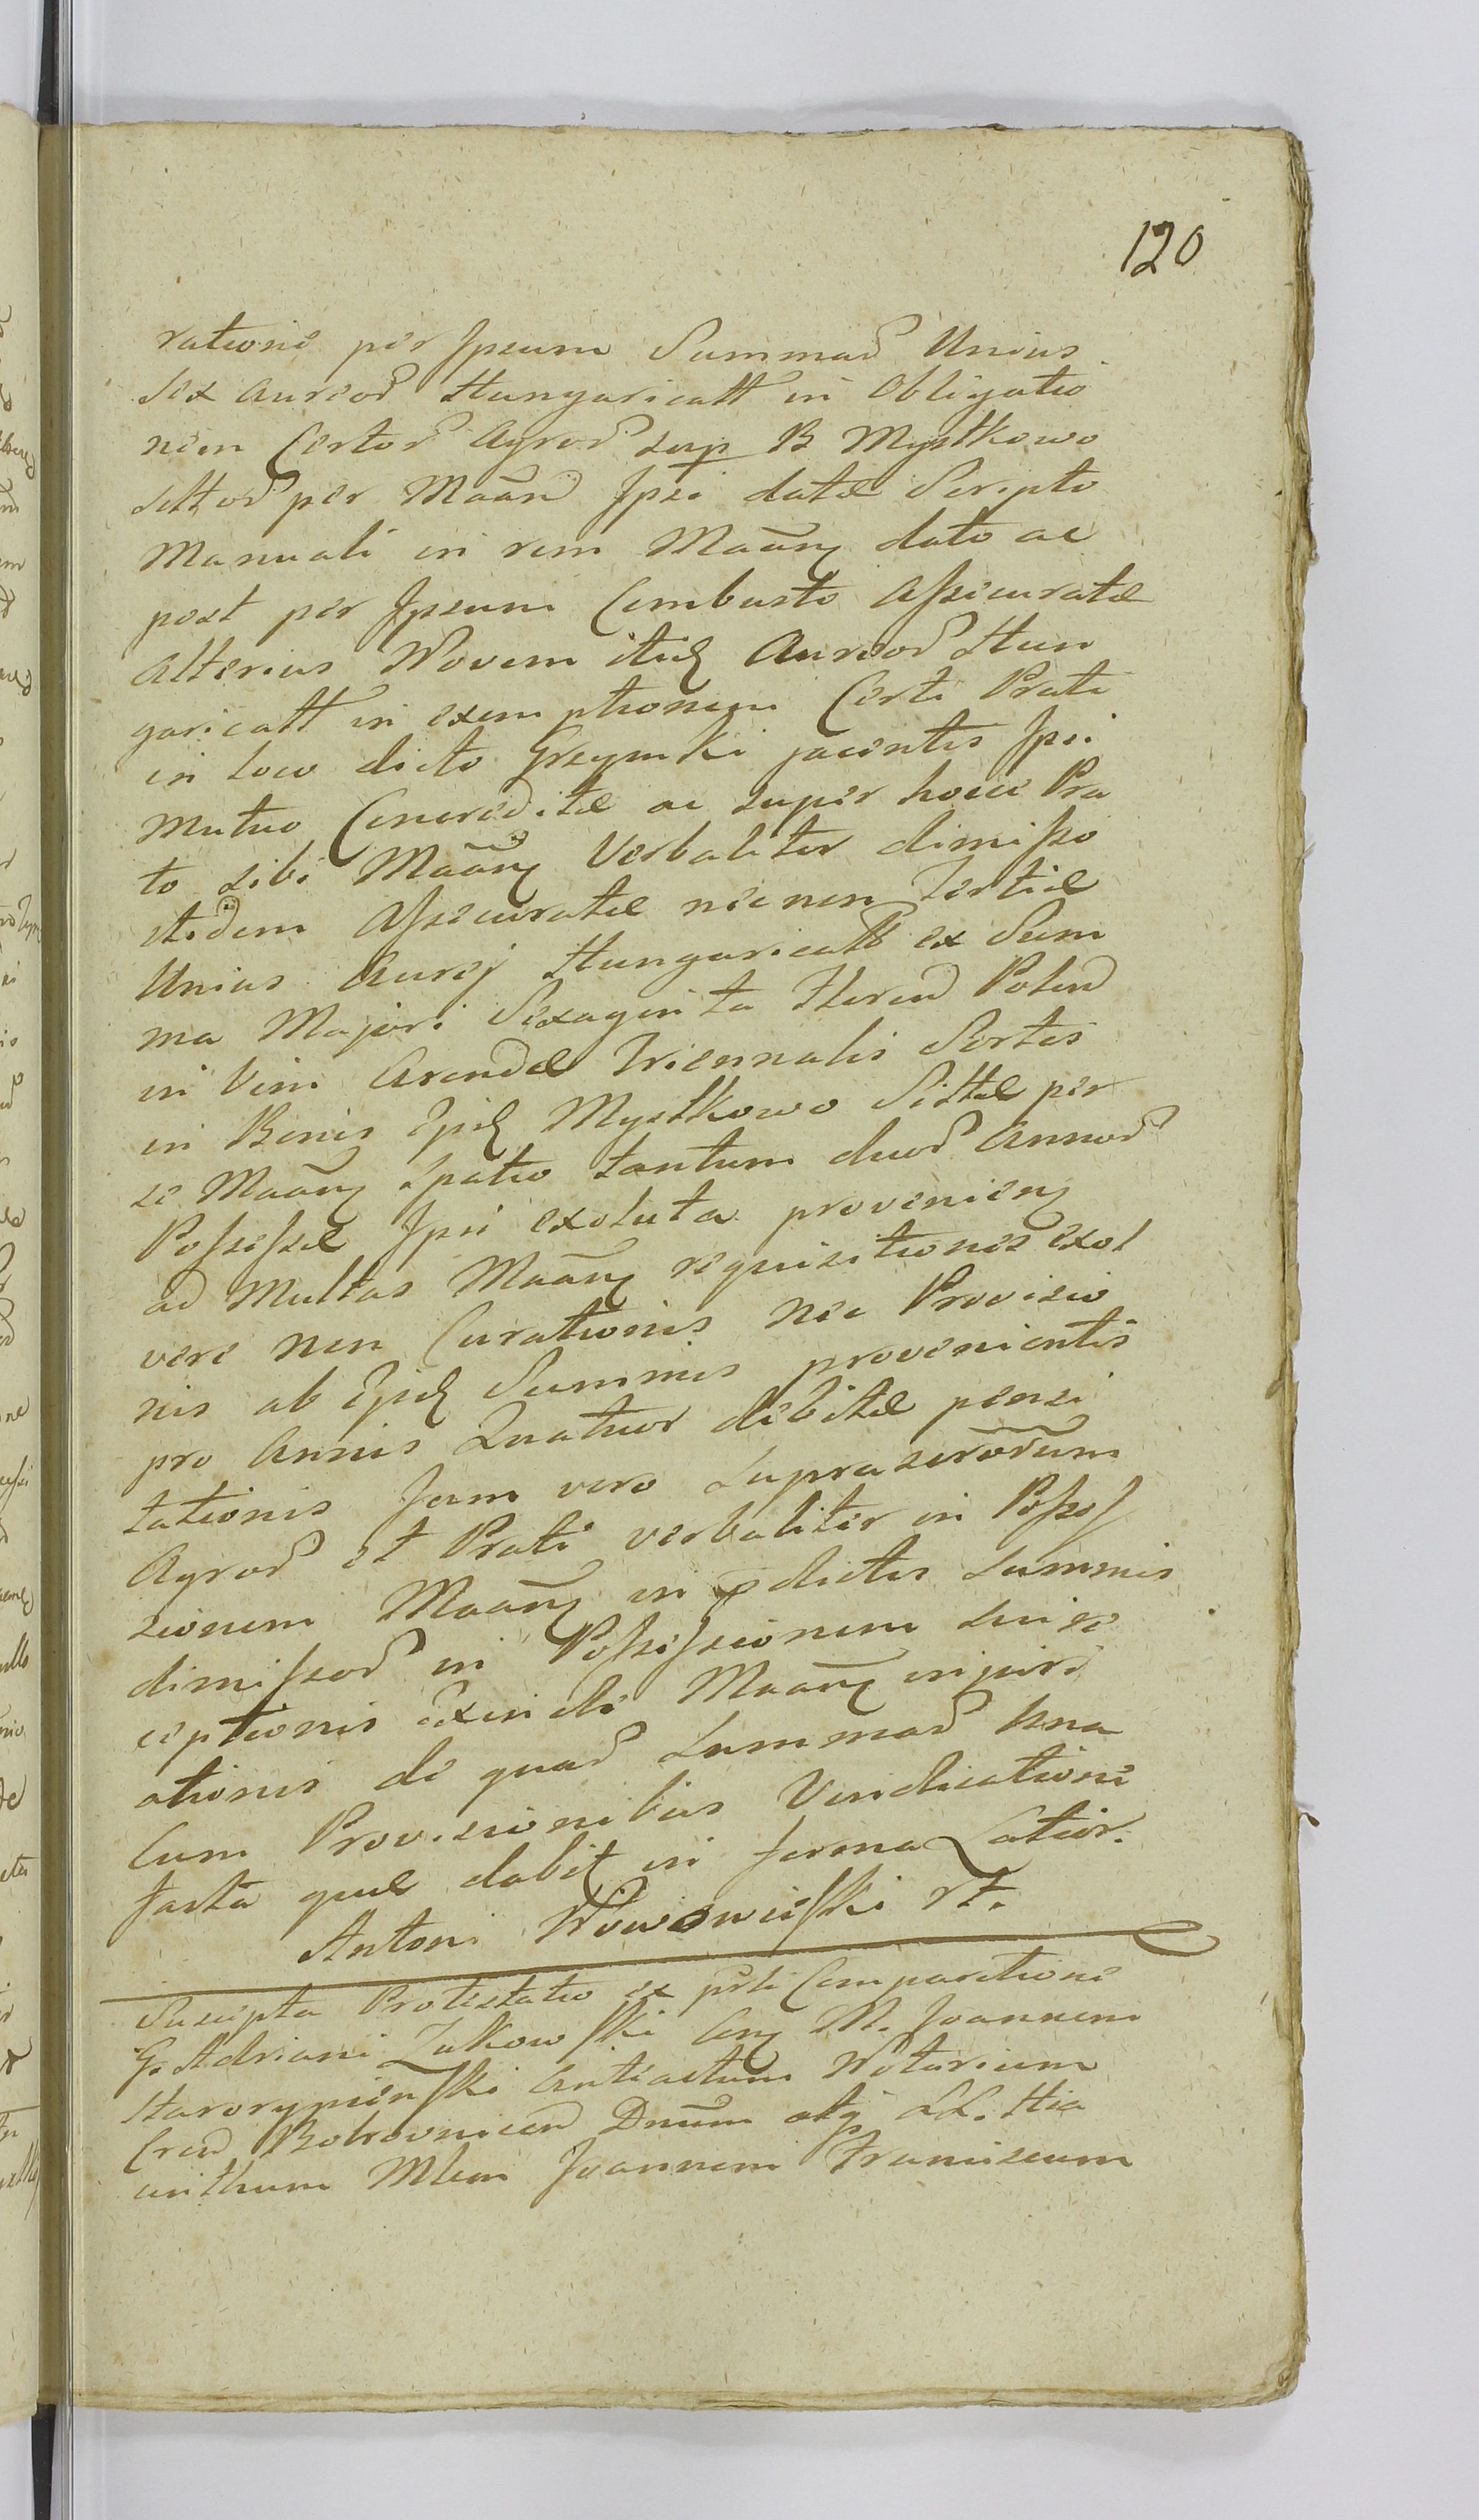 120
ratione per Ipsum Summaꝝ Unius
Sex Aureoꝝ Hungaricall in Obligatio
nem Certoꝝ Agroꝝ sup B Mystkowo
Sittoꝝ per Maãnd Ipsi datæ Scripto
Manuali in rem Maãnꝭ dato ac
post per Ipsum Combusto Assecuratæ
Alterius Novem itidꝭ Aureoꝝ Hun
garicall in exemptionem Certi Prati
in loco dicto Grzymki jacentis Ipsi
Mutuo Concreditæ ac super hocce Pra
to sibi Maãnꝭ Verbaliter dimisso
itidem Assecuratæ necnon Tertiæ
Unius Aurej Hungaricall ex Sum
ma Majori Sexaginta Floren Polon
in Vim Arendæ Triennalis Sortis
in Bonis Ejsdꝭ Mystkowo Sittæ per
se Maãnꝭ spatio tantum duoꝝ Annoꝝ
Possessæ Ipsi exoluta provenienꝭ
ad Multas Maãnꝭ requisitiones exol
vere non Curationis nec Provisio
nis ab Ejsdꝭ Summis provenientis
pro Annis Quatuor debitæ pensi
tationis Jam vero suprascrõrũm
Agroꝝ et Prati verbaliter in Posses
sionem Maãnꝭ in pdictis Summis
dimissoꝝ in Possessionem sui re
ceptionis Exinde Maãnꝭ injuri
ationis de quaꝝ Summaꝝ Una
Cum Provisionibus Vindicatione
facta quæ dabit in forma Latior.
Antoni Nowowieski rt.
Suscepta Protestatio ex psli Comparitione
G. Adriani Zukowski Conꝭ M. Joannem
Starorypienski Antiactum Notarium
Cren Bobrovnicen Dnũm atqꝫ LL. Hia
cinthum Mlem Joannem Franciscum